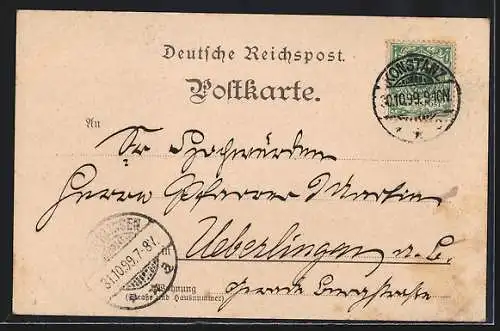 Deutsche Reichspost.
Postkarte.
KONSTANZ
30.10.99.9-10N.
An
Sr Hochwürden
Herrn Pfarrer Martin
Ueberlingen
31.10.99.7-8V.
in
Wohnung
(Straße und Hausnummer)